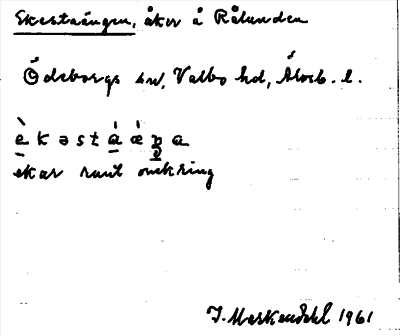 Ekestaängen, åker å Rålanden
Ödeborgs sn, Valbo hd, Älvsb. l.
è k ə s t à æ̀ ŋ a
ekar runt omkring
J. Maskendahl 1961